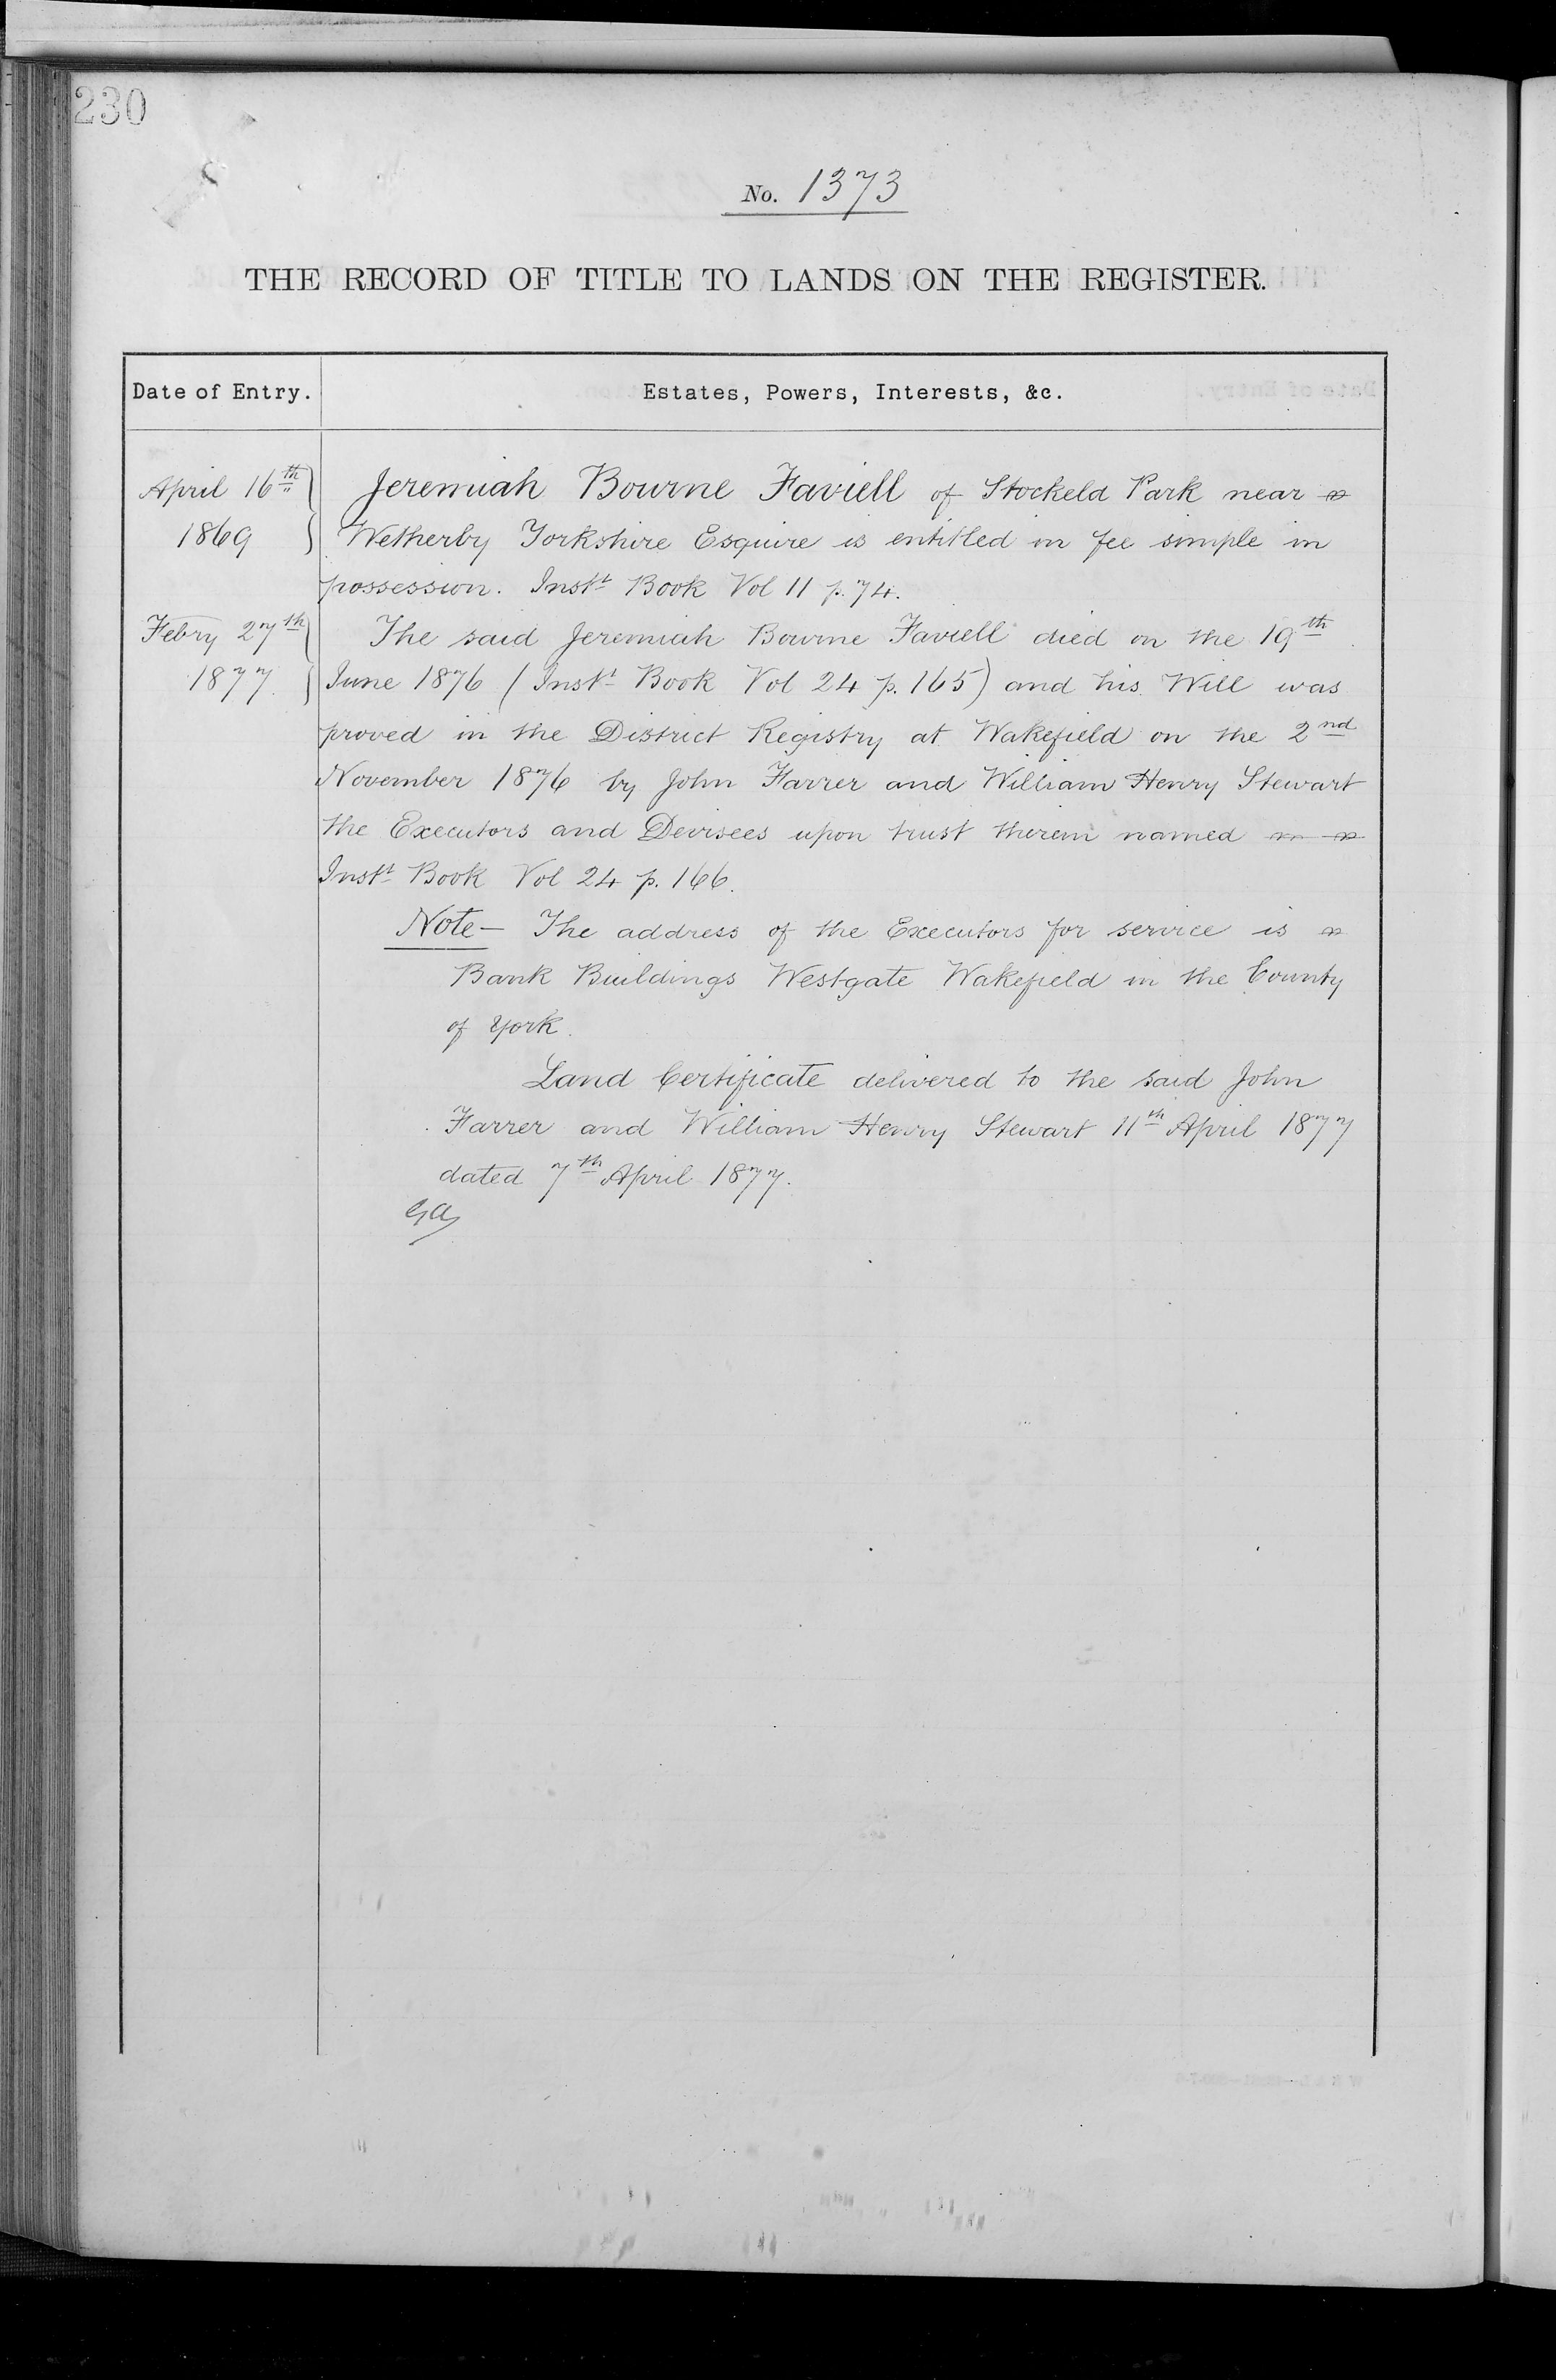 230
No. 1373
THE RECORD OF TITLE TO LANDS ON THE REGISTER.
Date of Entry.
Estates, Powers, Interests, &c.
April 16th
1869
Jeremiah Bourne Faviell of Stockeld Park near
Wetherby Yorkshire Esquire is entitled in fee simple in
possession. Inst Book Vol 11 p. 74.
Febry 27th
1877.
The said Jeremiah Bourne Faviell died on the 19th
June 1876 (Inst Book Vol 24 p. 165) and his Will was
proved in the District Registry at Wakefield on the 2nd
November 1876 by John Farrer and William Henry Stewart
the Executors and Devisees upon trust therein named
Inst Book Vol 24 p. 166.
Note - The address of the Executors for service is
Bank Buildings Westgate Wakefield in the County
of York.
Land Certificate delivered to the said John
Farrer and William Henry Stewart 11th April 1877
dated 7th April 1877.